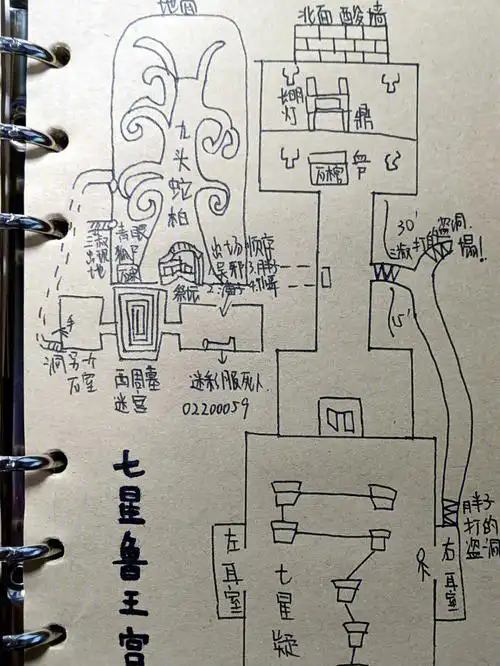 地面
北面 酸墙
长明灯
鼎
九头蛇柏
石棺
血尸
30'
三叔打的盗洞.
塌!
15'
三叔出现地
青眼狐尸
石碑
祭坛
出场顺序
1.吴邪 3.胖子
2.潘子 4.
手
洞另个
石室
西周墓
迷宫
迷彩服死人
02200059
胖子
打的
盗洞
左耳室
七星疑
右耳室
七星鲁王宫